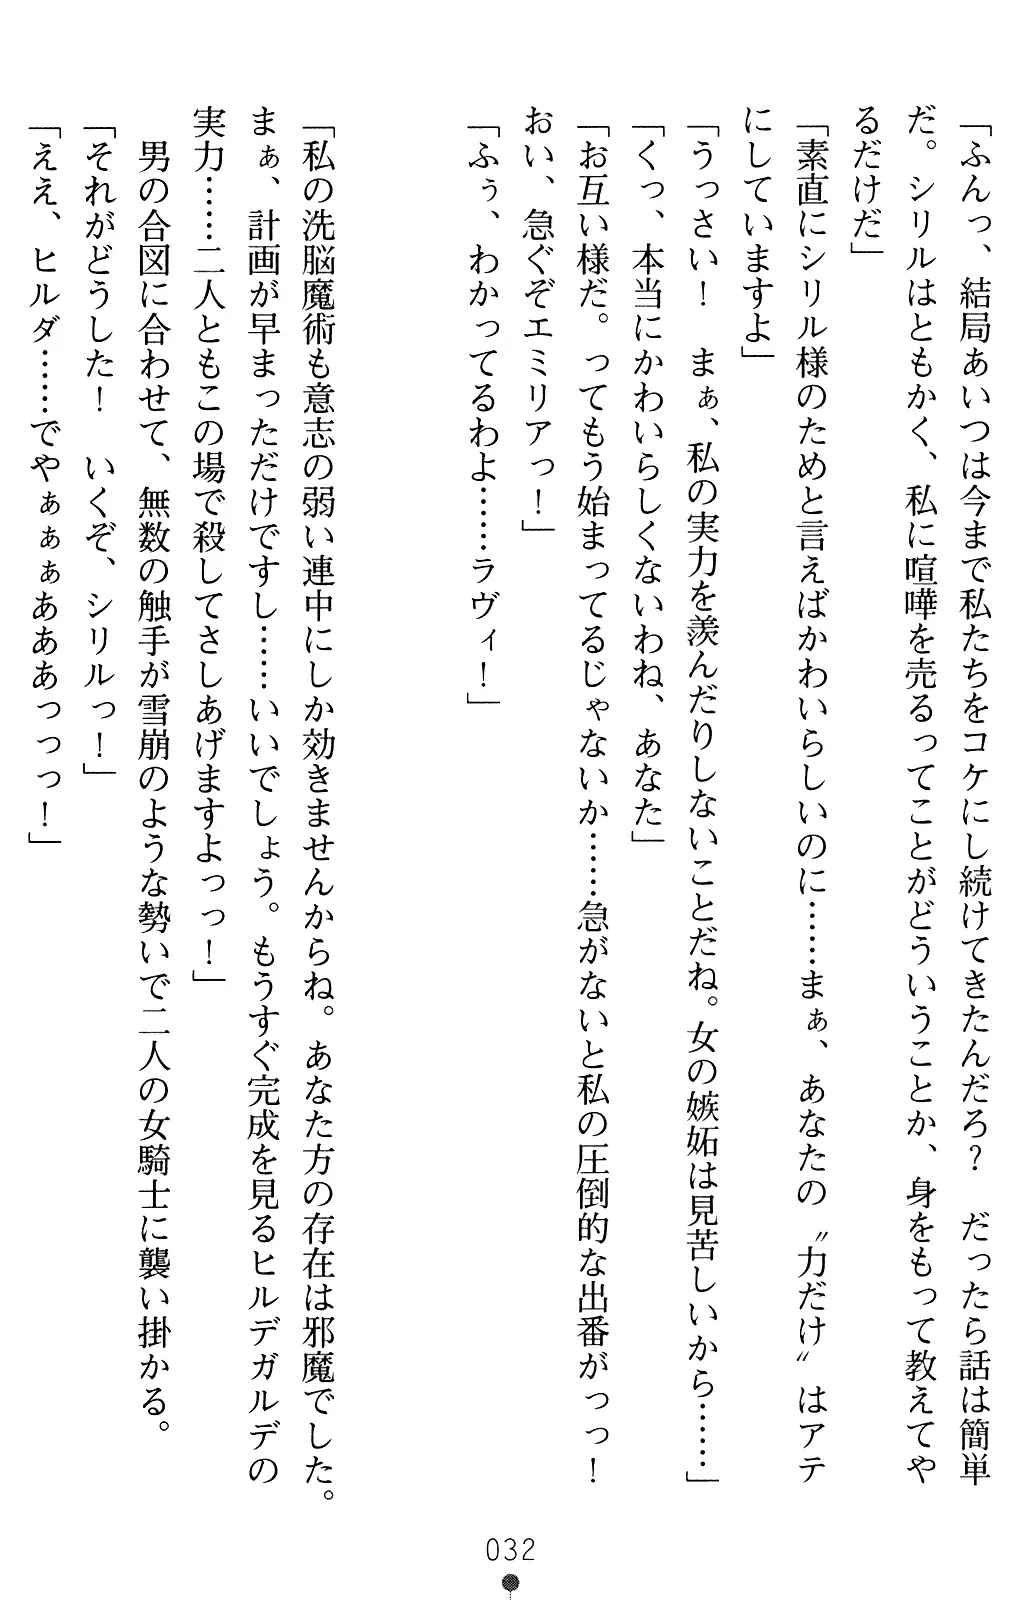 「ふんっ、結局あいつは今まで私たちをコケにし続けてきたんだろ？　だったら話は簡単
だ。シリルはともかく、私に喧嘩を売るってことがどういうことか、身をもって教えてや
るだけだ」
「素直にシリル様のためと言えばかわいらしいのに……まぁ、あなたの〝力だけ〟はアテ
にしていますよ」
「うっさい！　まぁ、私の実力を羨んだりしないことだね。女の嫉妬は見苦しいから……」
「くっ、本当にかわいらしくないわね、あなた」
「お互い様だ。ってもう始まってるじゃないか……急がないと私の圧倒的な出番がっっ！
おい、急ぐぞエミリアっ！」
「ふぅ、わかってるわよ……ラヴィ！」
「私の洗脳魔術も意志の弱い連中にしか効きませんからね。あなた方の存在は邪魔でした。
まぁ、計画が早まっただけですし……いいでしょう。もうすぐ完成を見るヒルデガルデの
実力……二人ともこの場で殺してさしあげますよっっ！」
　男の合図に合わせて、無数の触手が雪崩のような勢いで二人の女騎士に襲い掛かる。
「それがどうした！　いくぞ、シリルっ！」
「ええ、ヒルダ……でやぁぁぁあああっっっ！」
032